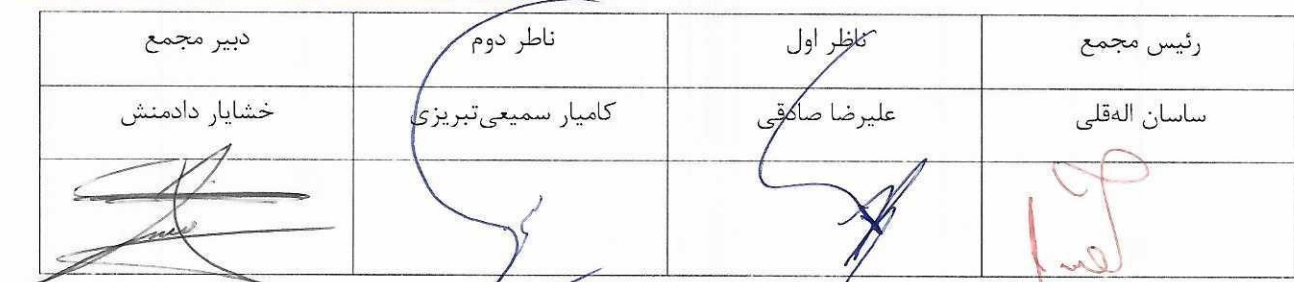 رئیس مجمع ناظر اول ناطر دوم دبیر مجمع
ساسان اله‌قلی علیرضا صادقی کامیار سمیعی‌تبریزی خشایار دادمنش